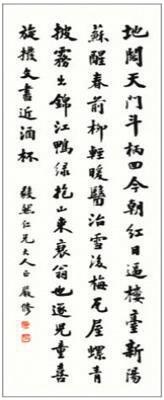 地闢天開斗柄回今朝紅日逼樓臺新陽
蘇醒春前柳輕暖醫治雪後梅瓦屋螺青
披霧出錦江鴨綠抱山來衰翁也逐兒童喜
旋撥文書近酒杯 毅然仁兄大人正 嚴修